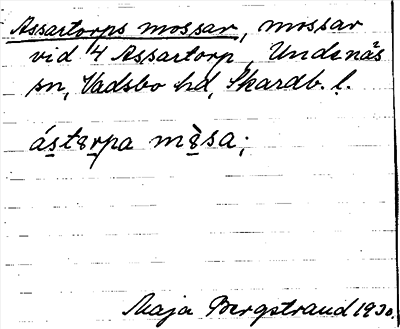 Assartorps mossar, mossar
vid 1/4 Assartorp, Undenäs
sn, Vadsbo hd, Skarab. l.
ástɐrpa mɐ̀sa;
Maja Bergstrand 1930.